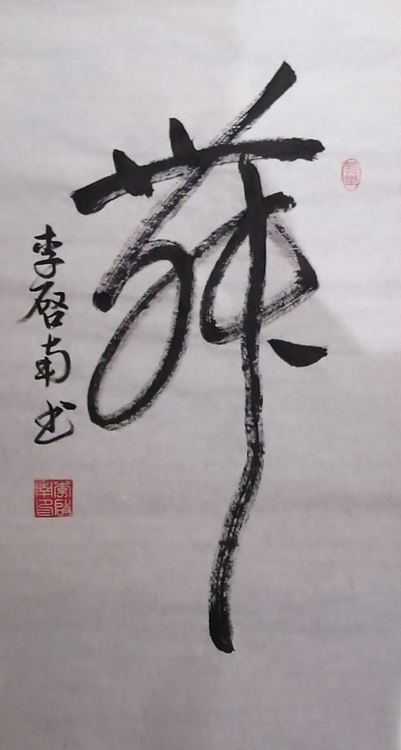 舞
李启南书